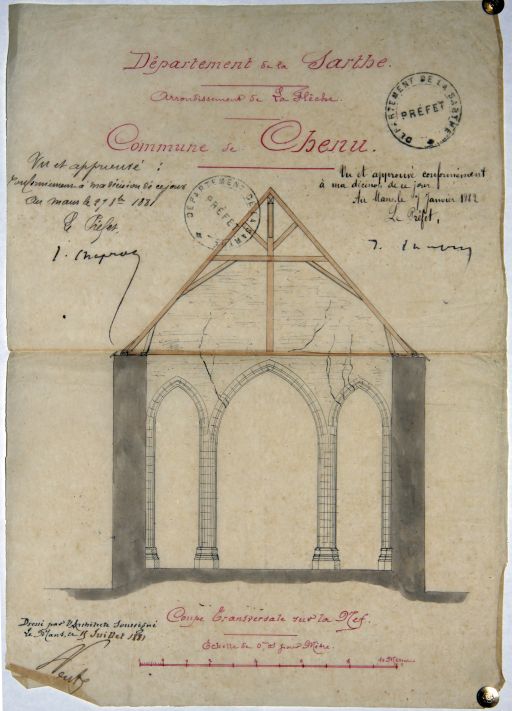 Département de la Sarthe.
Arrondissement de La Flèche.
Commune de Chenu.
DEPARTEMENT DE LA SARTHE
PREFET
Vu et approuvé :
Conformément à ma décision de ce jour
Au Mans le
1881
Le Préfet
DEPARTEMENT DE LA SARTHE
PREFET
Vu et approuvé conformément
à ma décision de ce jour
Au Mans, le Janvier 1882
Le Préfet,
Coupe Transversale sur la Nef.
Echelle de pour Mètre.
10 Mètres
Dressé par l'Architecte Soussigné
Le Mans, le 15 Juillet 1881